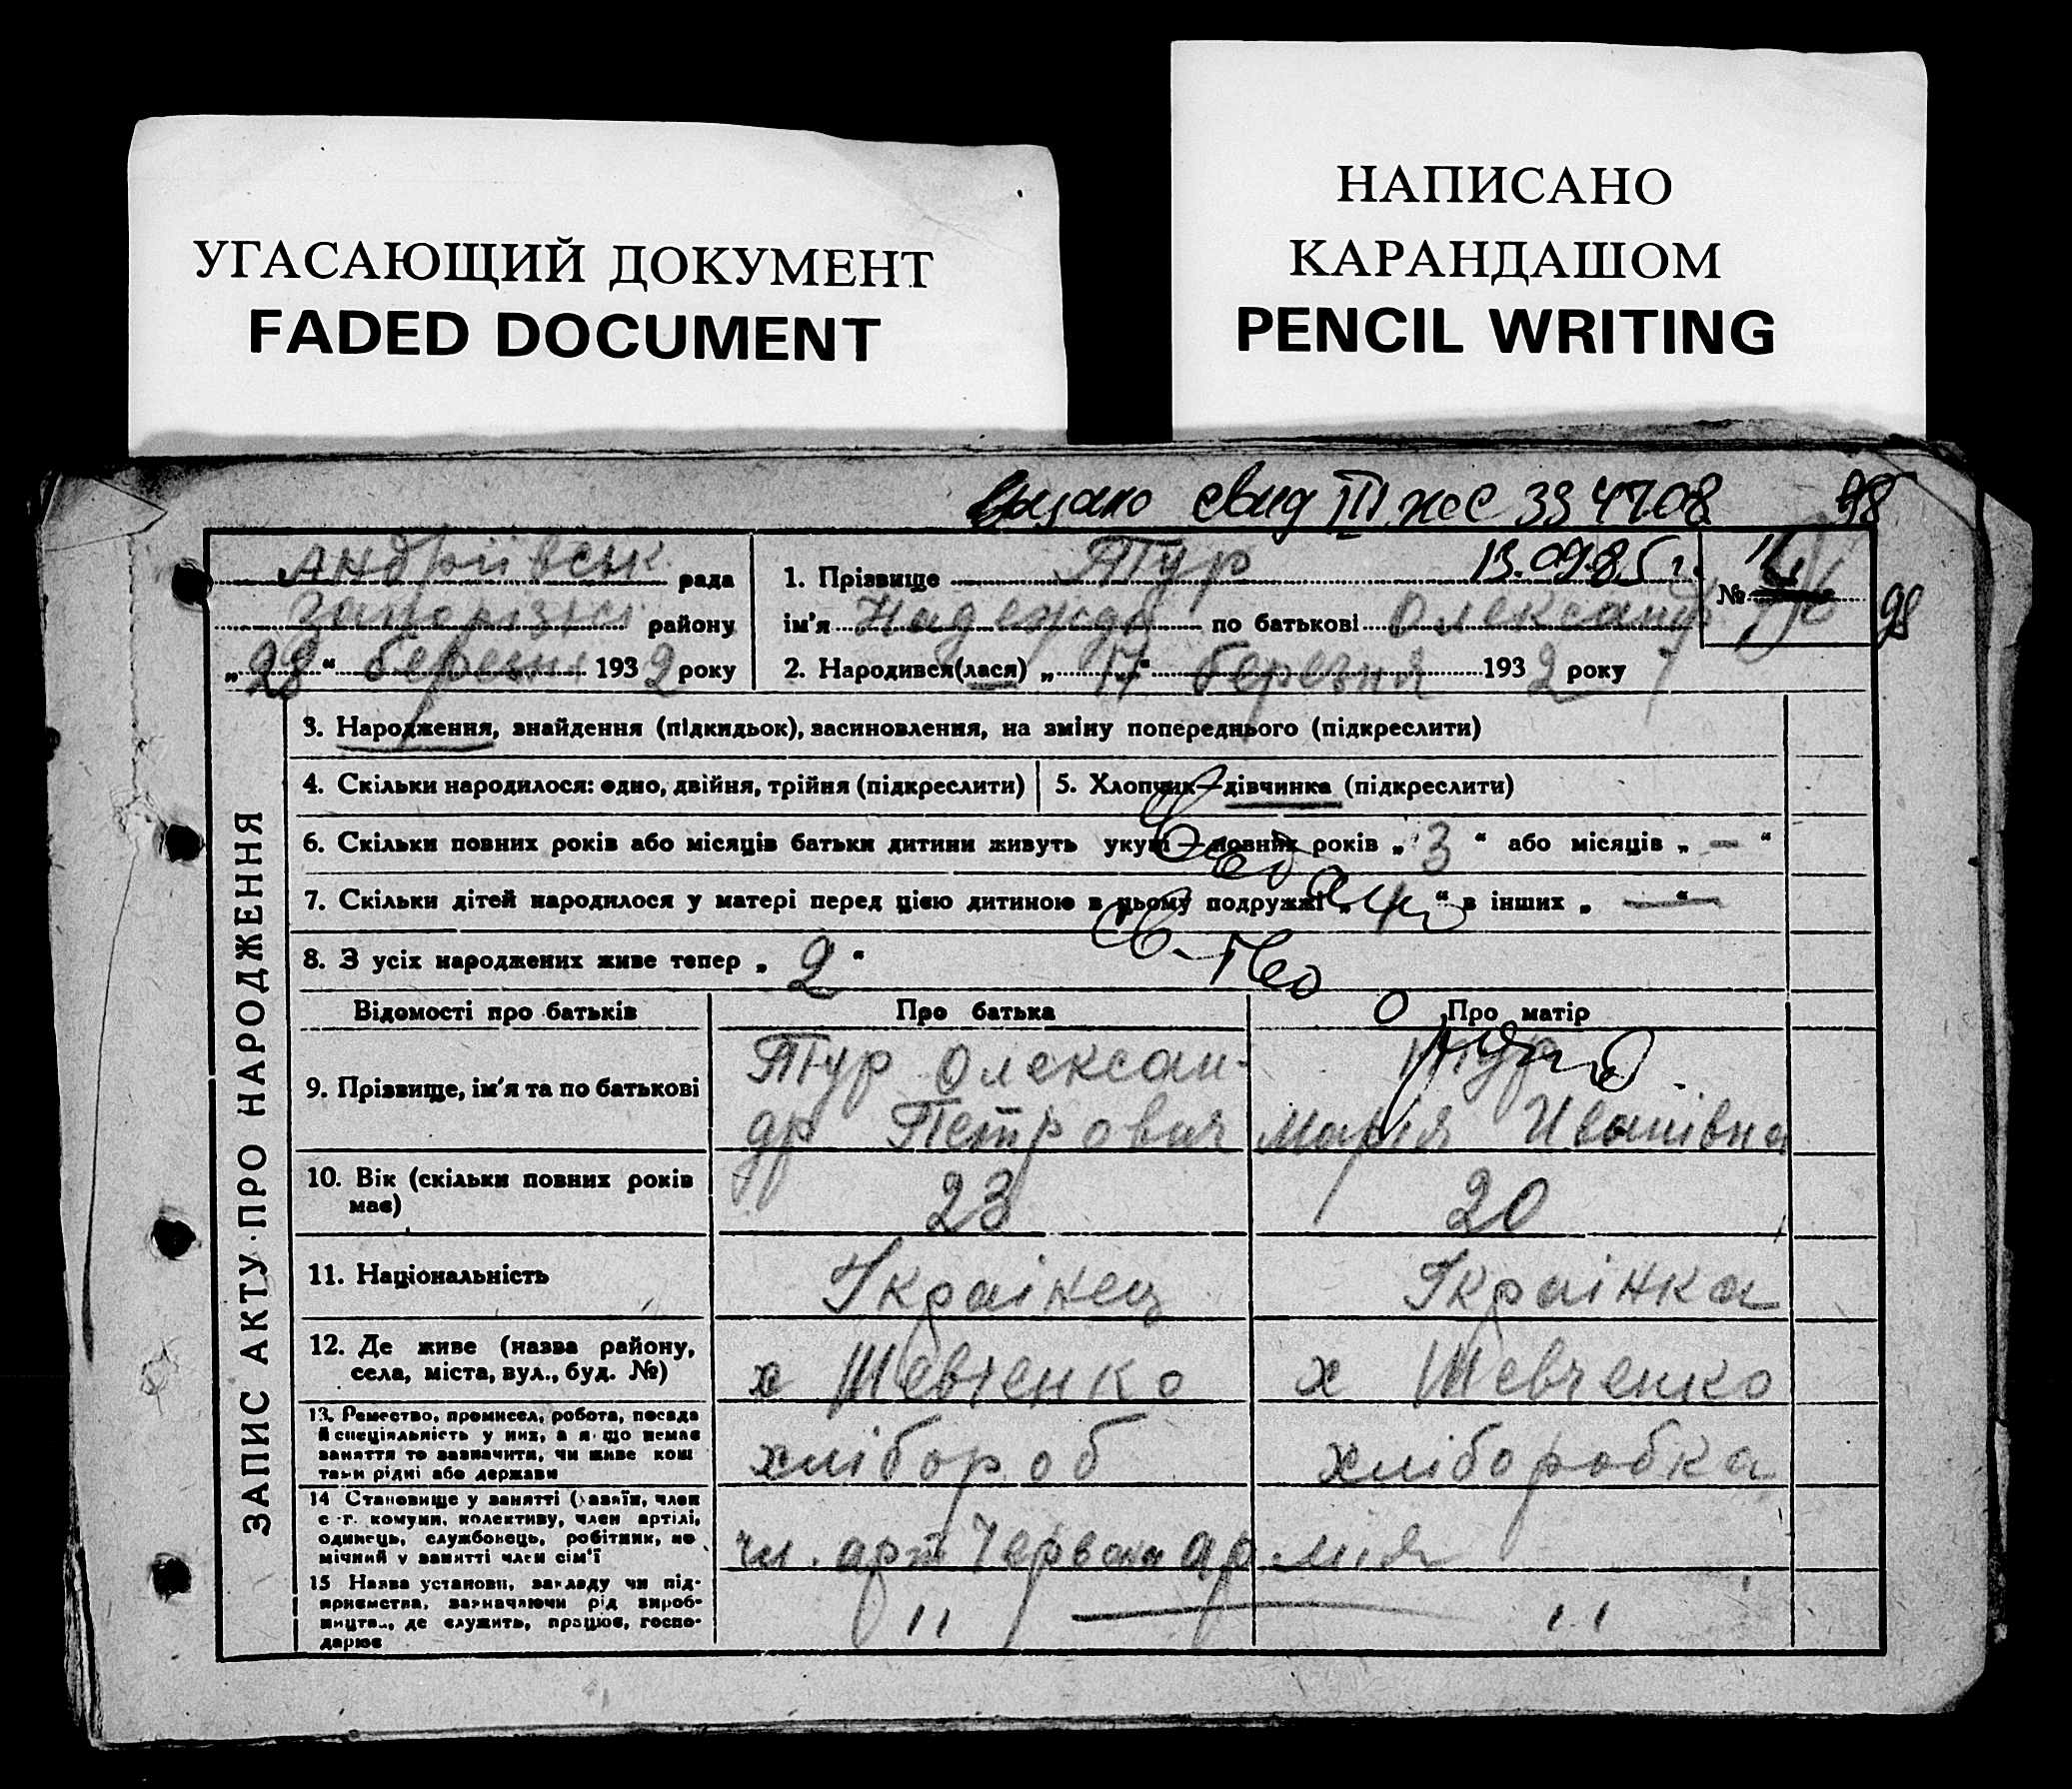 УГАСАЮЩИЙ ДОКУМЕНТ
FADED DOCUMENT
НАПИСАНО
КАРАНДАШОМ
PENCIL WRITING
видано свид III 334708
98
Андріївськ рада
Запорізьк району
„28“ березня 1932 року
1. Прізвище Тур 13.09.85 г.
ім'я Надежда по батькові Олександр
2. Народився(лася) „17“ березня 1932 року
№
98
ЗАПИС АКТУ ПРО НАРОДЖЕННЯ
3. Народження, знайдення (підкидьок), засиновлення, на зміну попереднього (підкреслити)
4. Скільки народилося: одно, двійня, трійня (підкреслити)
5. Хлопчик—дівчинка (підкреслити)
6. Скільки повних років або місяців батьки дитини живуть укупі—повних років „3“ або місяців „—“
7. Скільки дітей народилося у матері перед цією дитиною в цьому подружжі „1“ в інших „—“
8. З усіх народжених живе тепер „2“
Відомості про батьків
Про батька
Про матір
9. Прізвище, ім'я та по батькові
Тур Олексан-
др Петрович
Тур
Марія Иванівна
10. Вік (скільки повних років
має)
23
20
11. Національність
Українец
Українка
12. Де живе (назва району,
села, міста, вул., буд. №)
х Шевченко
х Шевченко
13. Ремество, промисел, робота, посада
й спеціяльність у них, а якщо немає
заняття то зазначити, чи живе кош
тами рідні або держави
хлібороб
хліборобка
14 Становище у занятті (хазяїн, член
с.-г. комуни, колективу, член артілі,
одинець, службовець, робітник, по
мічний у занятті член сім'ї
чл. арт Червона армія
15 Назва установи, закладу чи під-
приємства, зазначаючи рід вироб-
ництва, де служить, працює, госпо-
дарює
"
"